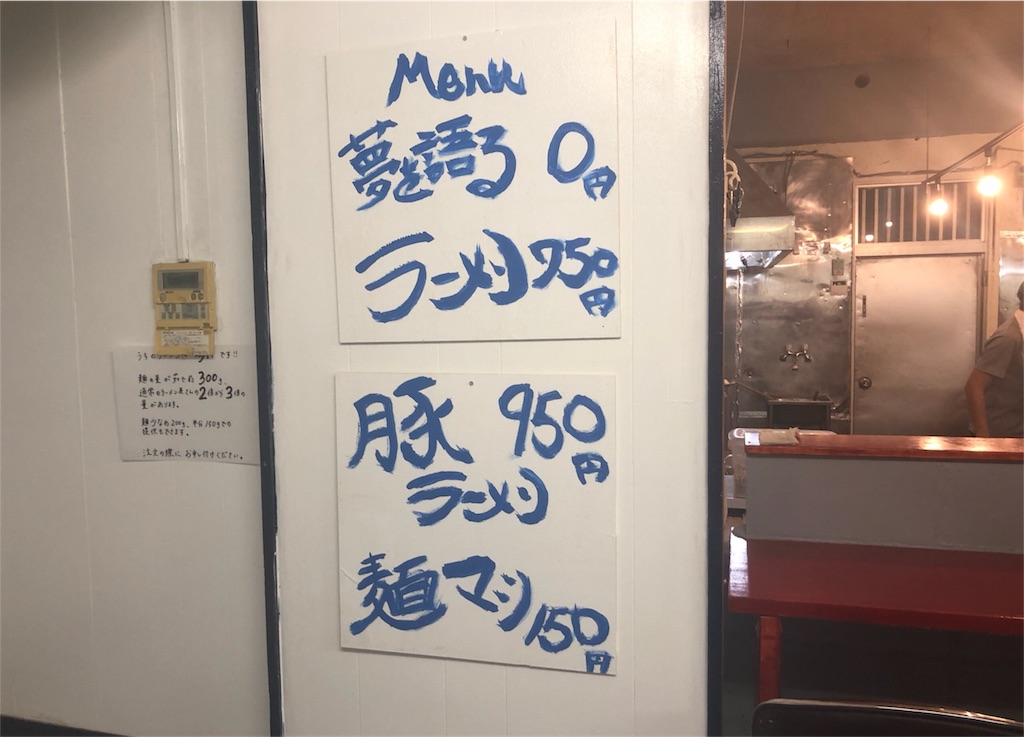 Menu
夢を語る 0円
ラーメン 750円
豚 950円
ラーメン
麺マシ 150円
です!!
麺の量が茹で前300g、
通常のラーメン屋さんの2倍から3倍の
量があります。
麺少なめ200g、半分150gでの
提供もできます。
注文の際にお申し付けください。